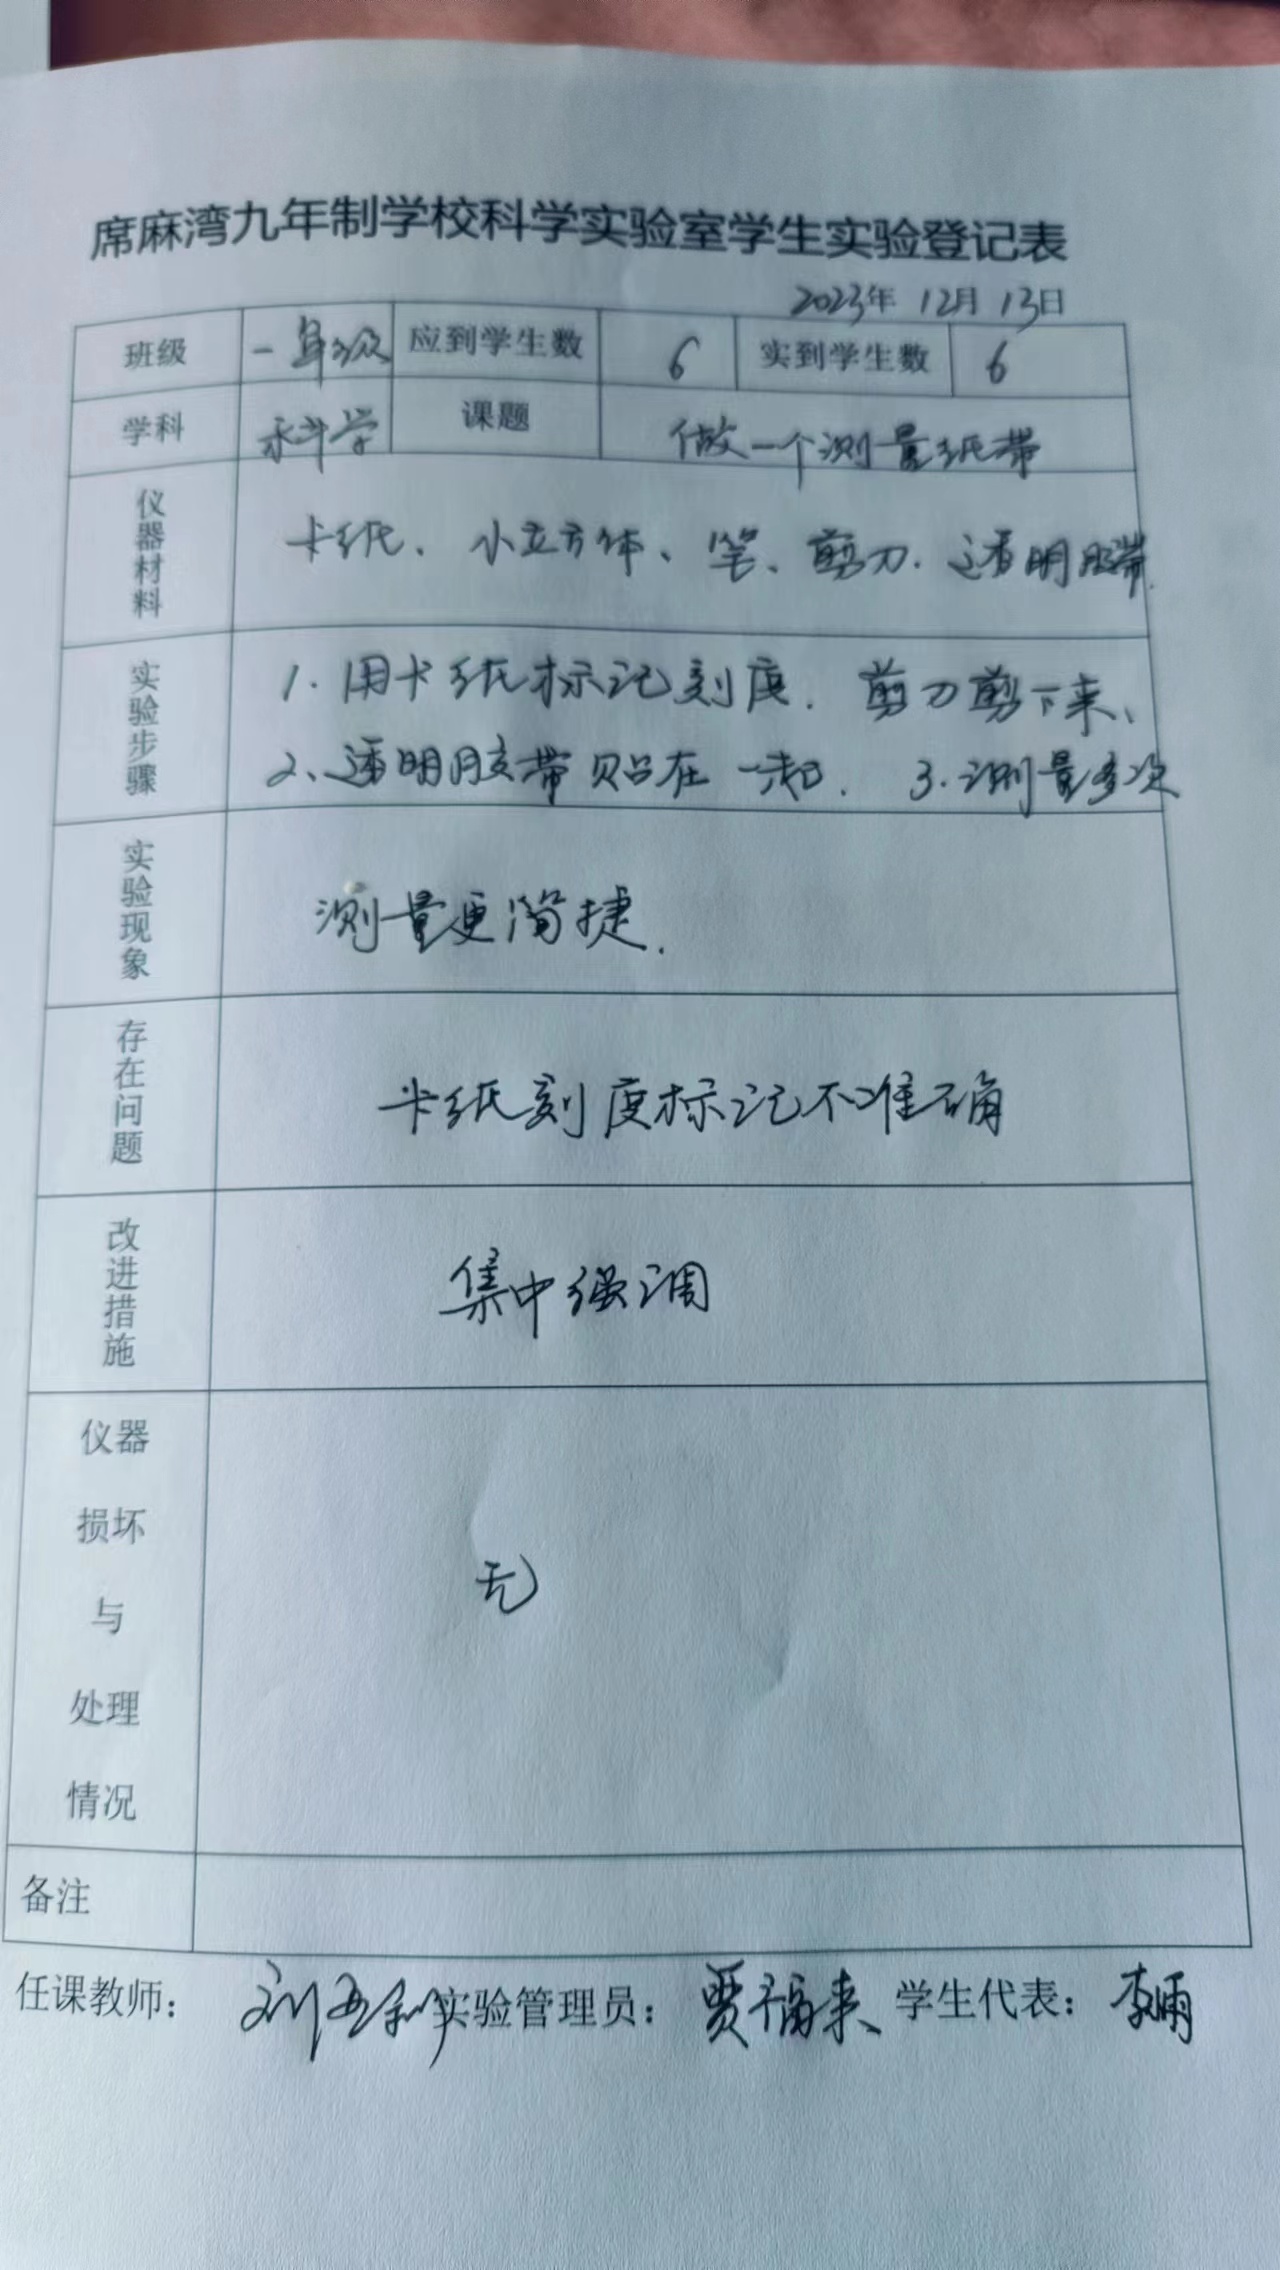 席麻湾九年制学校科学实验室学生实验登记表
2023年 12月 13日
班级 一年级 应到学生数 6 实到学生数 6
学科 科学 课题 做一个测量纸带
仪器材料 卡纸、小立方体、笔、剪刀、透明胶带
实验步骤 1.用卡纸标记刻度.剪刀剪下来、
2、透明胶带贴在一起. 3.测量多次
实验现象 测量更简捷.
存在问题 卡纸刻度标记不准确
改进措施 集中强调
仪器
损坏
与
处理
情况
无
备注
任课教师: 实验管理员: 贾福来 学生代表: